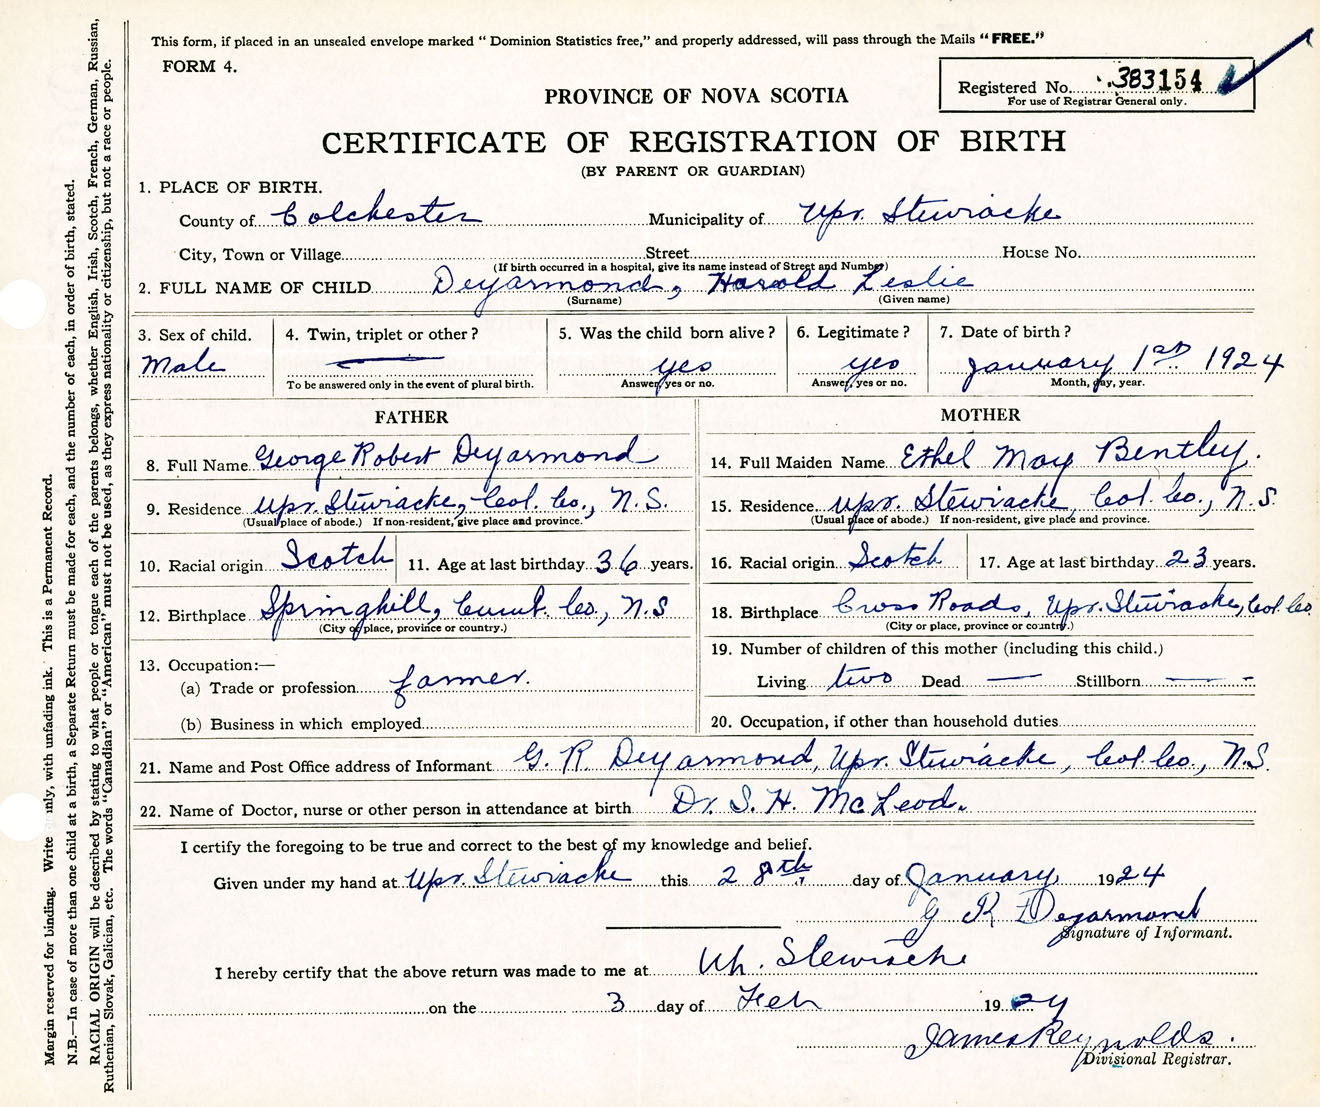 This form, if placed in an unsealed envelope marked " Dominion Statistics free," and properly addressed, will pass through the Mails " FREE."
FORM 4.
Registered No. 383154
For use of Registrar General only.
PROVINCE OF NOVA SCOTIA
CERTIFICATE OF REGISTRATION OF BIRTH
(BY PARENT OR GUARDIAN)
1. PLACE OF BIRTH.
County of Colchester Municipality of Upr. Stewiacke
City, Town or Village Street House No.
(If birth occurred in a hospital, give its name instead of Street and Number)
2. FULL NAME OF CHILD Deyarmond, Harold Leslie
(Surname) (Given name)
3. Sex of child. 4. Twin, triplet or other ? 5. Was the child born alive ? 6. Legitimate ? 7. Date of birth ?
Male — yes yes January 1st 1924
To be answered only in the event of plural birth. Answer yes or no. Answer yes or no. Month, day, year.
FATHER
8. Full Name George Robert Deyarmond
9. Residence Upr. Stewiacke, Col. Co., N.S.
(Usual place of abode.) If non-resident, give place and province.
10. Racial origin Scotch 11. Age at last birthday 36 years.
12. Birthplace Springhill, Cumb. Co., N.S
(City or place, province or country.)
13. Occupation:—
(a) Trade or profession farmer.
(b) Business in which employed
MOTHER
14. Full Maiden Name Ethel May Bentley.
15. Residence Upr. Stewiacke, Col. Co., N.S.
(Usual place of abode.) If non-resident, give place and province.
16. Racial origin Scotch 17. Age at last birthday 23 years.
18. Birthplace Cross Roads, Upr. Stewiacke, Col. Co.
(City or place, province or country.)
19. Number of children of this mother (including this child.)
Living two Dead — Stillborn — -
20. Occupation, if other than household duties
21. Name and Post Office address of Informant G. R. Deyarmond, Upr. Stewiacke, Col. Co., N.S.
22. Name of Doctor, nurse or other person in attendance at birth Dr. S. H. McLeod.
I certify the foregoing to be true and correct to the best of my knowledge and belief.
Given under my hand at Upr. Stewiacke this 28th day of January 1924
G R Deyarmond
Signature of Informant.
I hereby certify that the above return was made to me at Up. Stewiacke
on the 3 day of Feb 1924
James Reynolds.
Divisional Registrar.
Margin reserved for binding. Write nly, with unfading ink. This is a Permanent Record.
N.B.—In case of more than one child at a birth, a Separate Return must be made for each, and the number of each, in order of birth, stated.
RACIAL ORIGIN will be described by stating to what people or tongue each of the parents belongs, whether English, Irish, Scotch, French, German, Russian,
Ruthenian, Slovak, Galician, etc. The words "Canadian" or "American" must not be used, as they express nationality or citizenship, but not a race or people.